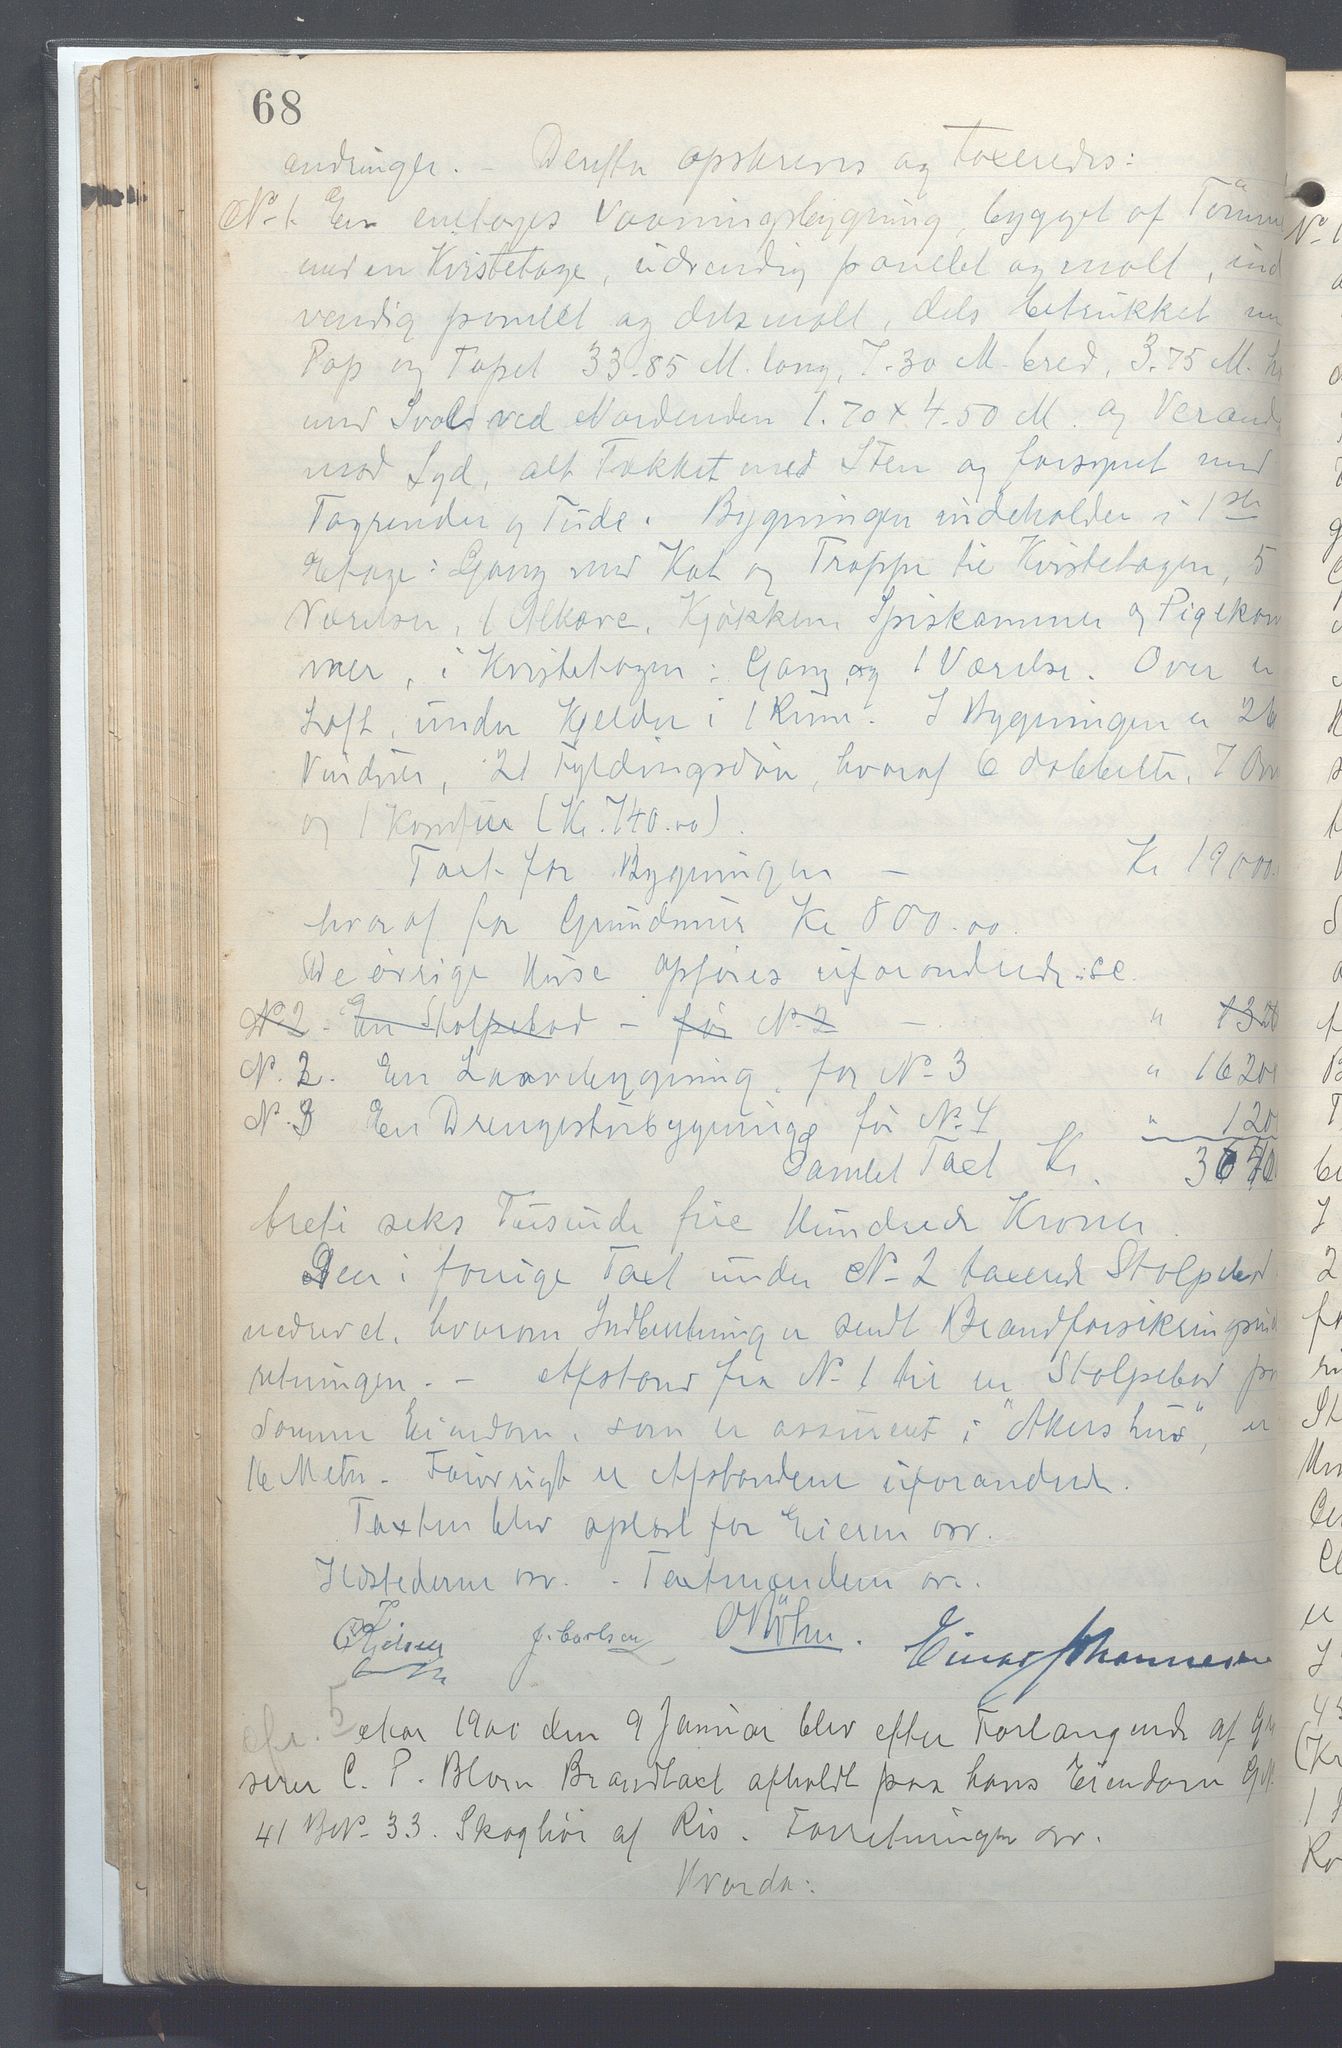 68
andringer. – Derefter opskreves og taxeredes:
No 1. En enetages Vaaningsbygning, bygget af Tømmer
med en Kvistetage, udvendig panelet og malt, ind
vendig panelet og dels malt, dels betrukket med
Pap og Tapet 33.85 M. lang, 7.30 M. bred, 3.75 M. h
med Sval ved Nordenden 1.70 x 4.50 M. og Verand
mod Syd, alt Tækket med Sten og forsynet med
Tagrender og Tude. Bygningen indeholder i 1ste
Etage: Gang med Kot og Trappe til Kvistetagen, 5
Værelser, 1 Alkove, Kjøkken, Spiskammer og Pigekam
mer, i Kvistetagen: Gang og 1 Værelse. Over er
Loft, under Kjelder i 1 Rum. I Bygningen er 26
Vinduer, 21 Fyldingsdøre, hvoraf 6 dobbelte, 7 Ovne
og 1 Komfur (Kr. 740.00).
Taxt for Bygningen – Kr 19000.
hvoraf for Grundmur Kr 800.00.
De øvrige Huse opføres uforandrede: se
No 2. En Stolpebod – før No 2 – " 1320
No. 2. En Laavebygning, før No 3 " 1620
No. 3 En Drengestubygning før No. 4 " 120
Samlet Taxt Kr.
treti seks Tusinde fire Hundrede Kroner.
Den i forrige Taxt under No 2 taxerede Stolpebod
nedrevet, hvorom Indberetning er sendt Brandforsikringsind
retningen. – Afstand fra No 1 til en Stolpebod paa
samme Eiendom, som er assureret i "Akershus", er
16 Meter. Forøvrigt er Afstandene uforandrede.
Taxten blev oplæst for Eieren osv.
Ildstederne osv. – Taxtmændene osv.
J. Carlsen O Bøhn. Einar Johannesen
Aar 1900 den 9 Januar blev efter Forlangende af
C. P. Blom Brandtaxt afholdt paa hans Eiendom G.N.
41 B.No. 33. Skogliø af Ris. Forretningen osv.
Hvorda: